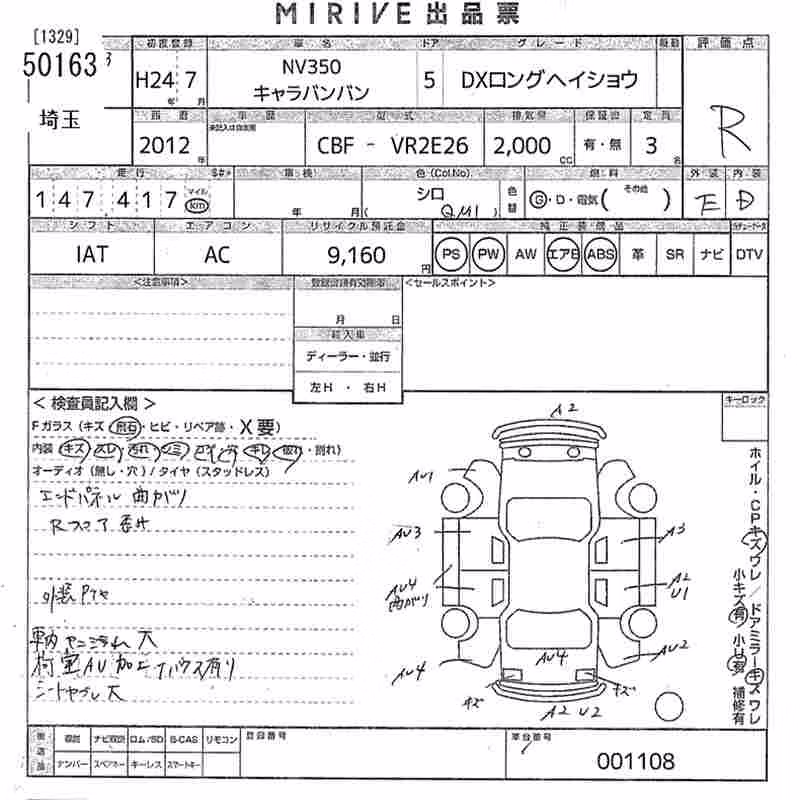 MIRIVE出品票
[1329]
50163
埼玉
初度登録 車名 ドア グレード 評価点
H24 7 NV350 キャラバンバン 5 DXロングヘイショウ
年 月
R
西暦 車歴 型式 排気量 保証書 定員
2012年 CBF - VR2E26 2,000 CC 有・無 3名
走行 車検 色(Col.No) 燃料 外装 内装
147417 マイル km 年 月( シロ QM1 ) 色替 G・D・電気( その他 ) E D
シフト エアコン リサイクル預託金 純正装備品
IAT AC 9,160円 PS PW AW エアB ABS 革 SR ナビ DTV
<注意事項> <セールスポイント>
月 日
輸入車
ディーラー・並行
左H ・ 右H
キーロック
<検査員記入欄>
Fガラス(キズ・飛石・ヒビ・リペア跡・X要)
内装 キズ スレ 汚れ シミ コゲ 穴 キレ 破れ・割れ)
オーディオ(無し・穴)/タイヤ(スタッドレス)
エンドパネル 曲がり
Rフロア
外装
大
荷室AU加工 ハウス有り
シートヤブレ大
A2
AU1
AU3
A3
AU4
曲がり
A2
U1
AU4
AU2
AU4
キズ
キズ
A2 U2
ホイル・CPキズワレ/ドアミラーキズワレ
小キズ有 小U有 補修有
後送品 取説 ナビ取説 ロム/SD B-CAS リモコン
ナンバー スペアキー キーレス スマートキー
登録番号
車台番号
001108